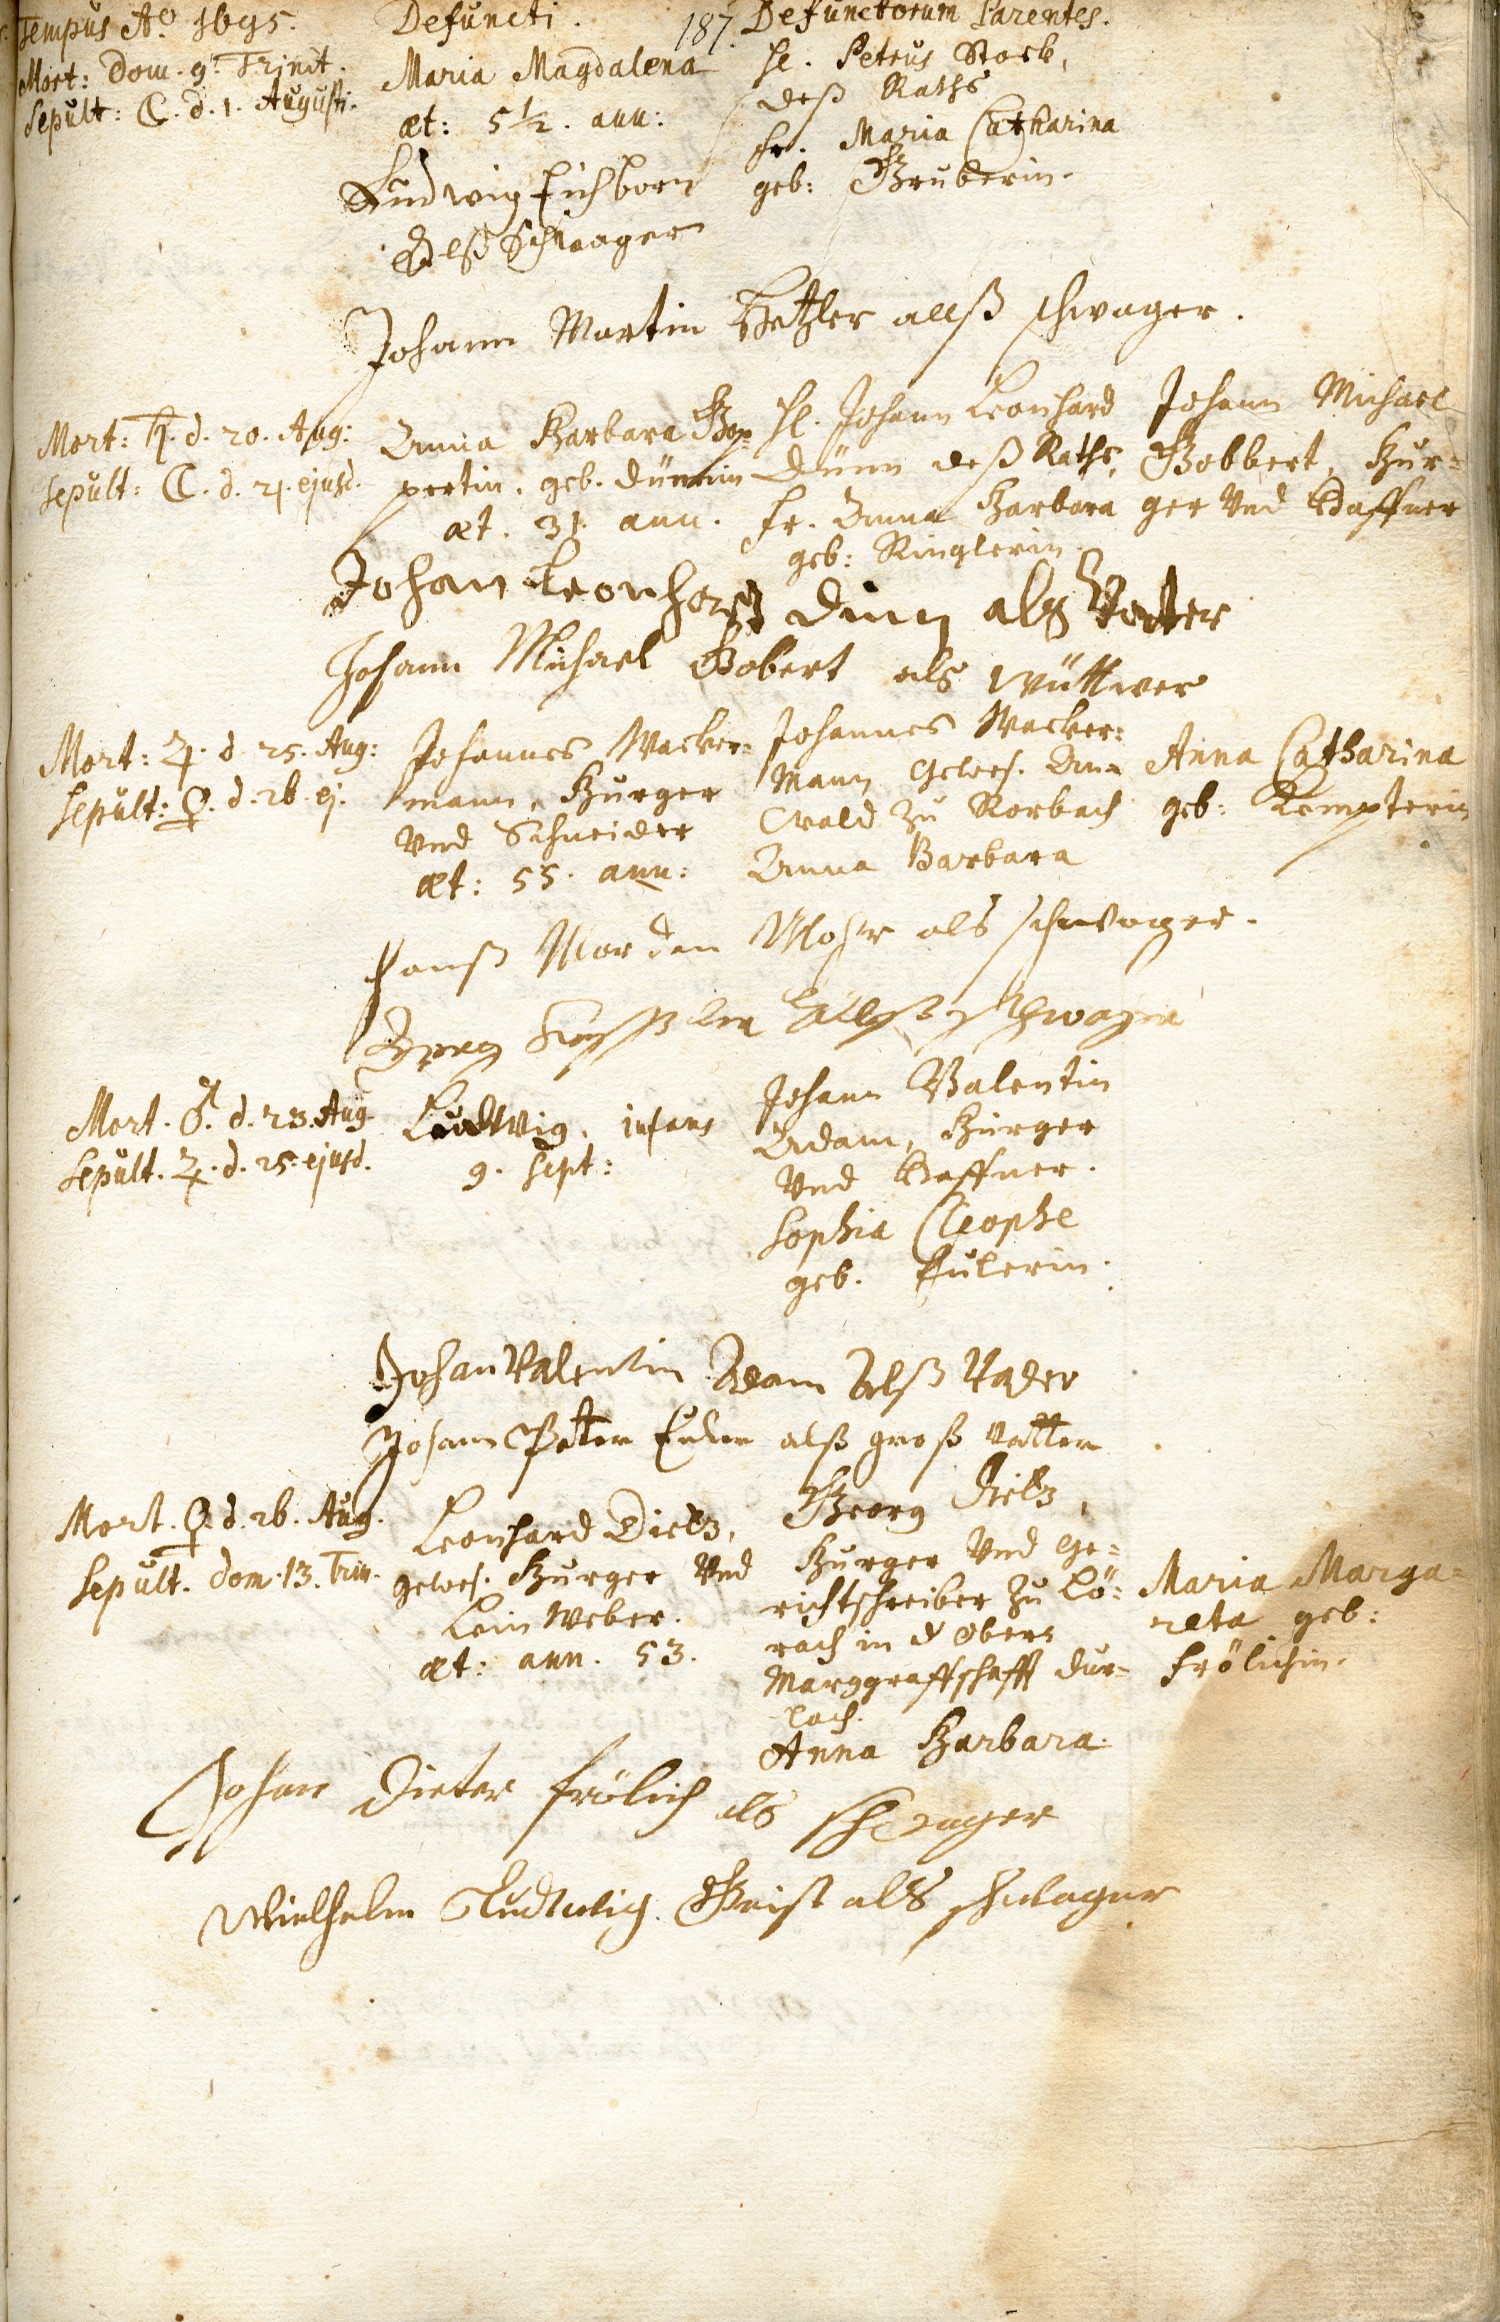 Tempus Aº 1695.
Defuncti.
187.
Defunctorum Parentes.
Mort: Dom. 9. Trinit.
Sepult: ☾. d. 1. Augusti.
Maria Magdalena
æt: 5½. ann:
H. Petrus Stock,
deß Raths
Fr. Maria Catharina
geb: Gruberin.
Ludwig Eichborn
alß Schwager
Johann Martin Hetzler allß schwager.
Mort: ♄. d. 20. Aug:
Sepult: ☾. d. 21. ejusd.
Anna Barbara Bop-
pertin, geb. Dünnin
æt. 31. ann.
H. Johann Leonhard
Dünn deß Raths,
Fr. Anna Barbara
geb: Ringlerin
Johann Michael
Bobbert, Bur=
ger Vnd Haffner
Johan Leonhardt Dinn als Vatter
Johann Michael Bobert als wüttwer
Mort: ♃. d. 25. Aug:
Sepult: ♀. d. 26. ej.
Johannes Wacker=
mann, Burger
Vnd Schneider
æt: 55. ann:
Johannes Wacker=
mann Geweß.
zu Rorbach
Anna Barbara
Anna Catharina
geb: Kempterin
Hanß Mor den Mohr als schwager.
allß schwager
Mort. ♂. d. 23. Aug
Sepult. ♃. d. 25. ejusd.
Ludwig, infans
9. sept:
Johann Valentin
Adam, Burger
Vnd Haffner.
Sophia Cleophe
geb. Eulerin.
Johan Valentin Adam Alß Vader
Johann Peter Euler alß groß vatter
Mort. ♀. d. 26. Aug.
Sepult. Dom. 13. Trin.
Leonhard Dietz,
gewes. Burger Vnd
Leinweber.
æt: ann. 53.
Georg Dietz,
Burger Vnd Ge=
richtschreiber zu Lö=
rach in d Obern
Marggraffschafft Dur=
lach.
Anna Barbara.
Maria Marga=
reta geb:
Frölichin.
Johan Dieter frölich als schwager
Wielhelm Ludwig Geist als schwager